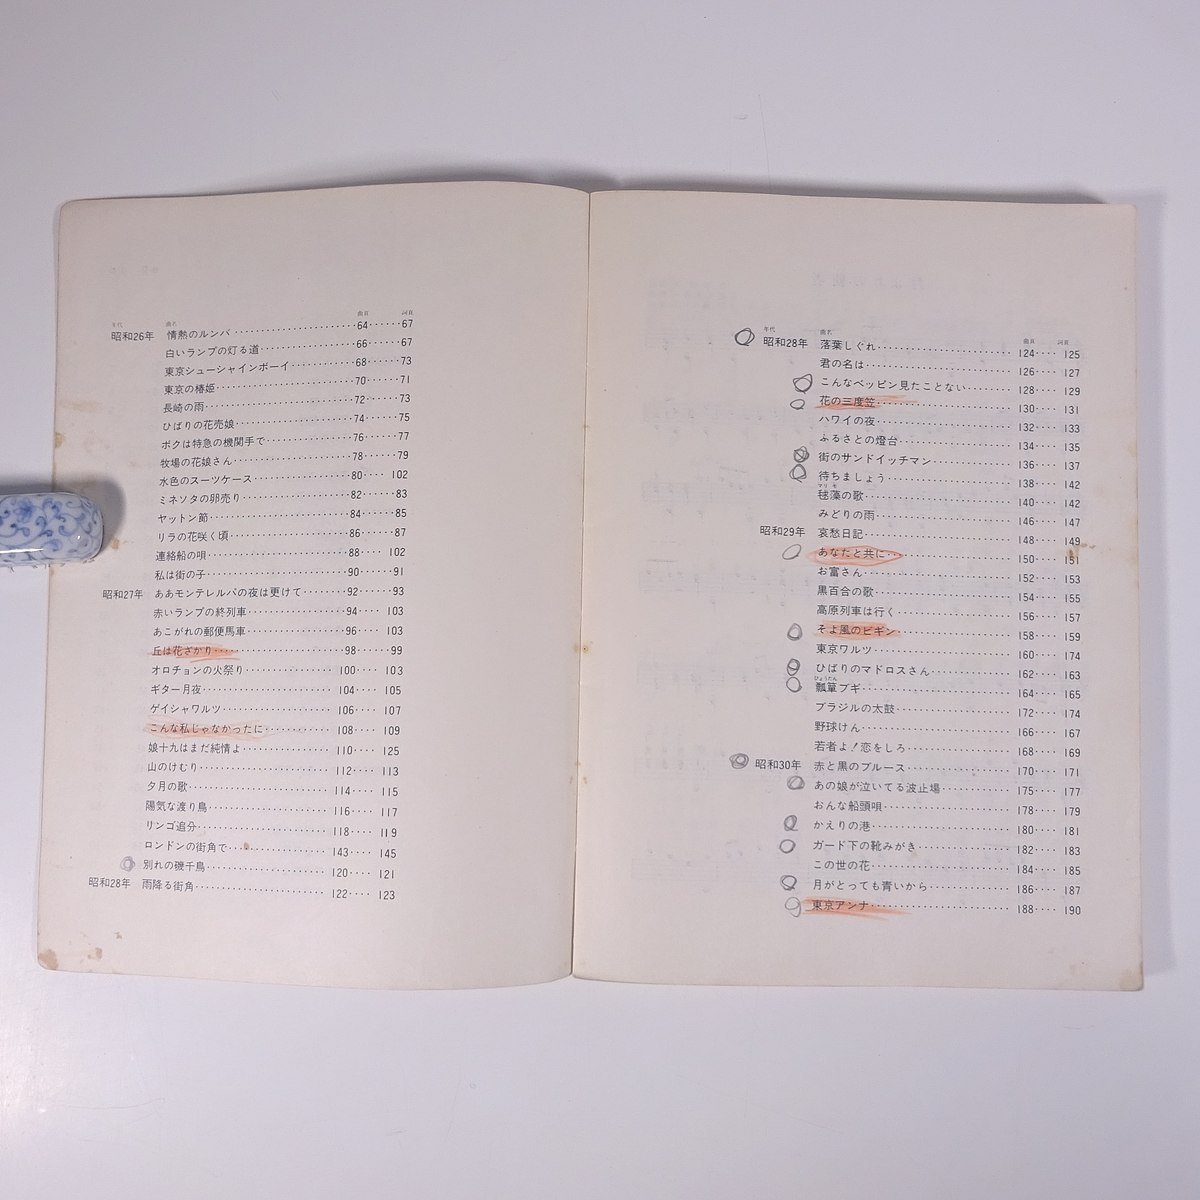 年代 曲名 曲頁 詞頁
昭和26年 情熱のルンバ 64 67
白いランプの灯る道 66 67
東京シューシャインボーイ 68 73
東京の椿姫 70 71
長崎の雨 72 73
ひばりの花売娘 74 75
ボクは特急の機関手で 76 77
牧場の花娘さん 78 79
水色のスーツケース 80 102
ミネソタの卵売り 82 83
ヤットン節 84 85
リラの花咲く頃 86 87
連絡船の唄 88 102
私は街の子 90 91
昭和27年 ああモンテンルパの夜は更けて 92 93
赤いランプの終列車 94 103
あこがれの郵便馬車 96 103
丘は花ざかり 98 99
オロチョンの火祭り 100 103
ギター月夜 104 105
ゲイシャワルツ 106 107
こんな私じゃなかったに 108 109
娘十九はまだ純情よ 110 125
山のけむり 112 113
夕月の歌 114 115
陽気な渡り鳥 116 117
リンゴ追分 118 119
ロンドンの街角で 143 145
別れの磯千鳥 120 121
昭和28年 雨降る街角 122 123
年代 曲名 曲頁 詞頁
昭和28年 落葉しぐれ 124 125
君の名は 126 127
こんなベッピン見たことない 128 129
花の三度笠 130 131
ハワイの夜 132 133
ふるさとの燈台 134 135
街のサンドイッチマン 136 137
待ちましょう 138 142
マリモ
毬藻の歌 140 142
みどりの雨 146 147
昭和29年 哀愁日記 148 149
あなたと共に 150 151
お富さん 152 153
黒百合の歌 154 155
高原列車は行く 156 157
そよ風のビギン 158 159
東京ワルツ 160 174
ひばりのマドロスさん 162 163
ひょうたん
瓢箪ブギ 164 165
ブラジルの太鼓 172 174
野球けん 166 167
若者よ!恋をしろ 168 169
昭和30年 赤と黒のブルース 170 171
あの娘が泣いてる波止場 175 177
おんな船頭唄 178 179
かえりの港 180 181
ガード下の靴みがき 182 183
この世の花 184 185
月がとっても青いから 186 187
東京アンナ 188 190